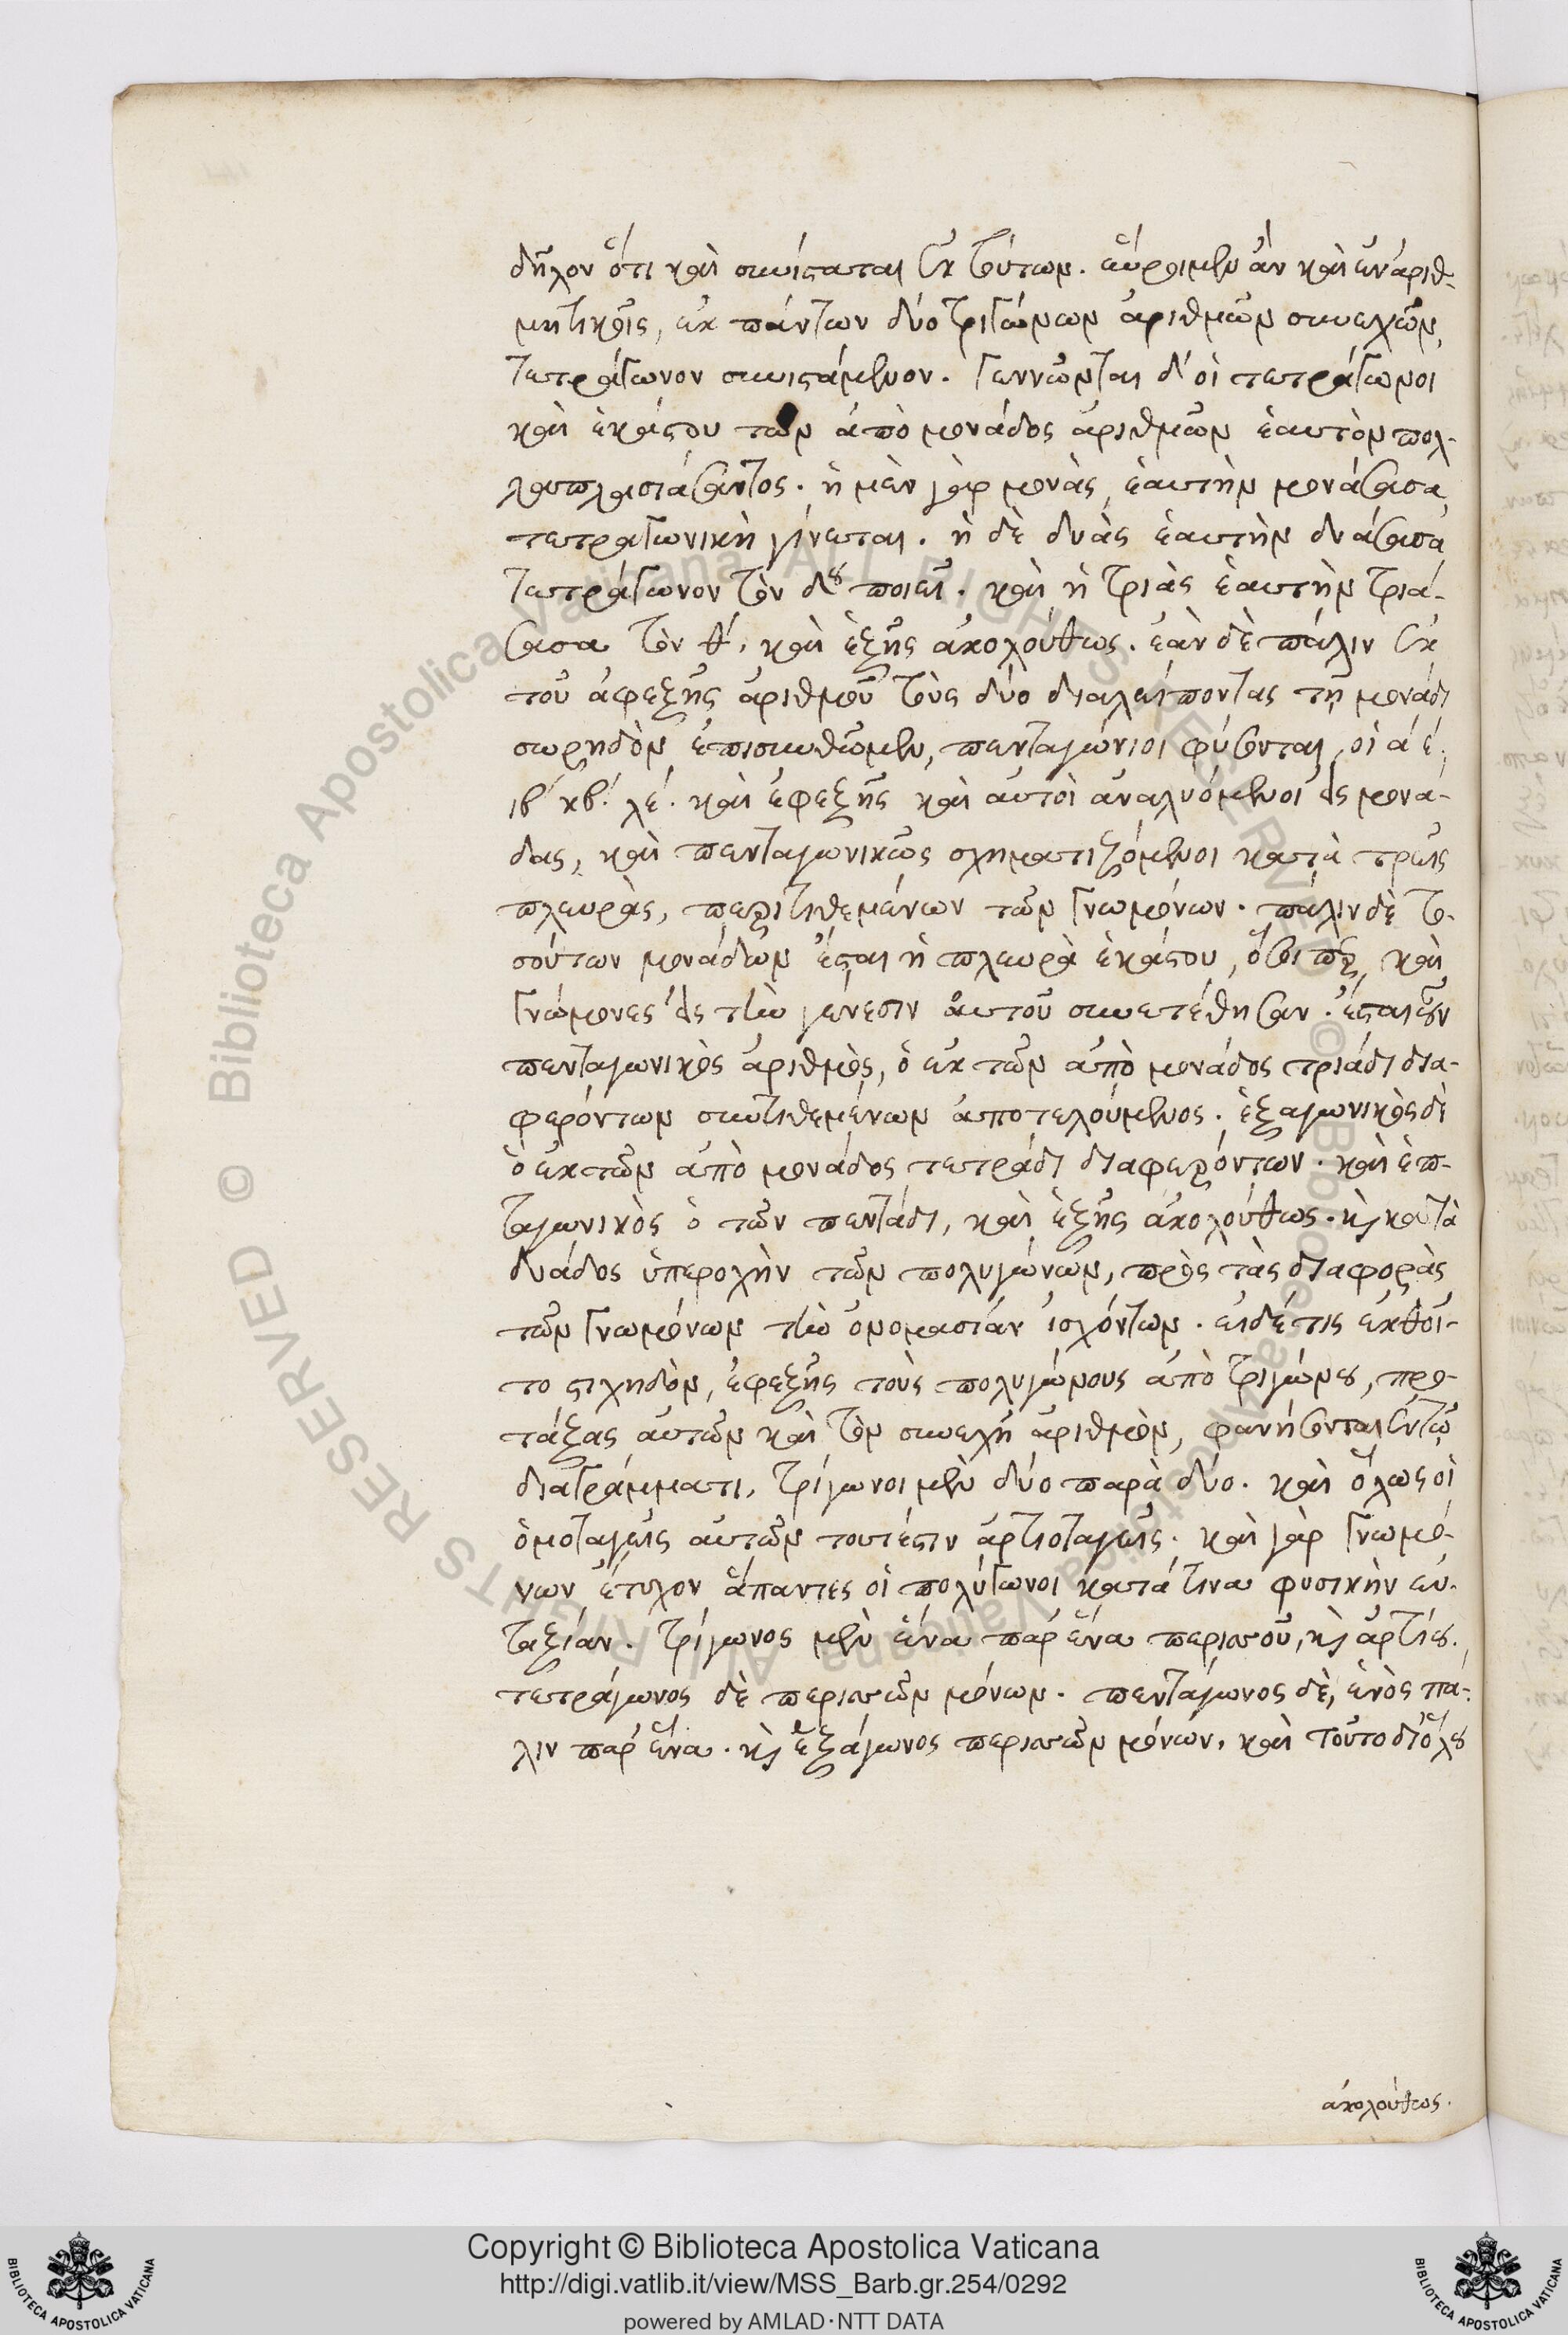 δῆλον ὅτι καὶ συνίσταται ἐκ τούτων. εὕροιμεν ἂν καὶ ἐν ἀριθ-
μητικοῖς, ἐκ πάντων δύο τριγώνων ἀριθμῶν συνεχῶν,
τετράγωνον συνιστάμενον. γεννῶνται δ' οἱ τετράγωνοι
καὶ ἑκάστου τῶν ἀπὸ μονάδος ἀριθμῶν ἑαυτὸν πολ-
λαπλασιάσαντος. ἡ μὲν γὰρ μονὰς, ἑαυτὴν μονάσασα,
τετραγωνικὴ γίνεται. ἡ δὲ δυὰς ἑαυτὴν δυάσασα
τετράγωνον τὸν δον ποιεῖ. καὶ ἡ τριὰς ἑαυτὴν τριά-
σασα τὸν θ', καὶ ἑξῆς ἀκολούθως. ἐὰν δὲ πάλιν ἐκ
τοῦ ἀφεξῆς ἀριθμοῦ τοὺς δύο διαλείποντας τῇ μονάδι
σωρηδὸν ἐπισυνθῶμεν, πενταγώνιοι φύσονται, οἱ α' ε'.
ιβ' κβ'. λε'. καὶ ἐφεξῆς καὶ αὐτοὶ ἀναλυόμενοι εἰς μονά-
δας, καὶ πενταγωνικῶς σχηματιζόμενοι κατὰ τρεῖς
πλευρὰς, περιτιθεμένων τῶν γνωμόνων. πάλιν δὲ το-
σούτων μονάδων ἔσται ἡ πλευρὰ ἑκάστου, ὅσοι περ, καὶ
γνώμονες εἰς τὴν γένεσιν αὐτοῦ συνετέθησαν. ἔσται οὖν
πενταγωνικὸς ἀριθμὸς, ὁ ἐκ τῶν ἀπὸ μονάδος τριάδι δια-
φερόντων συντιθεμένων ἀποτελούμενος. ἑξαγωνικὸς δὲ
ὁ ἐκ τῶν ἀπὸ μονάδος τετράδι διαφερόντων. καὶ ἑπ-
ταγωνικὸς ὁ τῶν πεντάδι, καὶ ἑξῆς ἀκολούθως. καὶ κατὰ
δυάδος ὑπεροχὴν τῶν πολυγώνων, πρὸς τὰς διαφορὰς
τῶν γνωμόνων τὴν ὀνομασίαν ἰσχόντων. εἰ δέ τις ἐκθοῖ-
το στιχηδὸν, ἐφεξῆς τοὺς πολυγώνους ἀπὸ τριγώνου, προ-
τάξας αὐτῶν καὶ τὸν συνεχῆ ἀριθμὸν, φανήσονται ἐν τῷ
διαγράμματι, τρίγωνοι μὲν δύο παρὰ δύο. καὶ ὅλως οἱ
ὁμοταγεῖς αὐτῶν τουτέστιν ἀρτιοταγεῖς. καὶ γὰρ γνωμό-
νων ἔτυχον ἅπαντες οἱ πολύγωνοι κατά τινα φυσικὴν εὐ-
ταξίαν. τρίγωνος μὲν ἕνα παρ' ἕνα περισσοῦ, καὶ ἀρτίου.
τετράγωνος δὲ περισσῶν μόνων. πεντάγωνος δὲ, ἑνὸς πά-
λιν παρ' ἕνα. καὶ ἑξάγωνος περισσῶν μόνων. καὶ τοῦτο δι' ὅλου
ἀκολούθως.
Copyright © Biblioteca Apostolica Vaticana
http://digi.vatlib.it/view/MSS_Barb.gr.254/0292
powered by AMLAD·NTT DATA
BIBLIOTECA APOSTOLICA VATICANA
BIBLIOTECA APOSTOLICA VATICANA
Biblioteca Apostolica Vaticana ALL RIGHTS RESERVED ©
Biblioteca Apostolica Vaticana ALL RIGHTS RESERVED ©